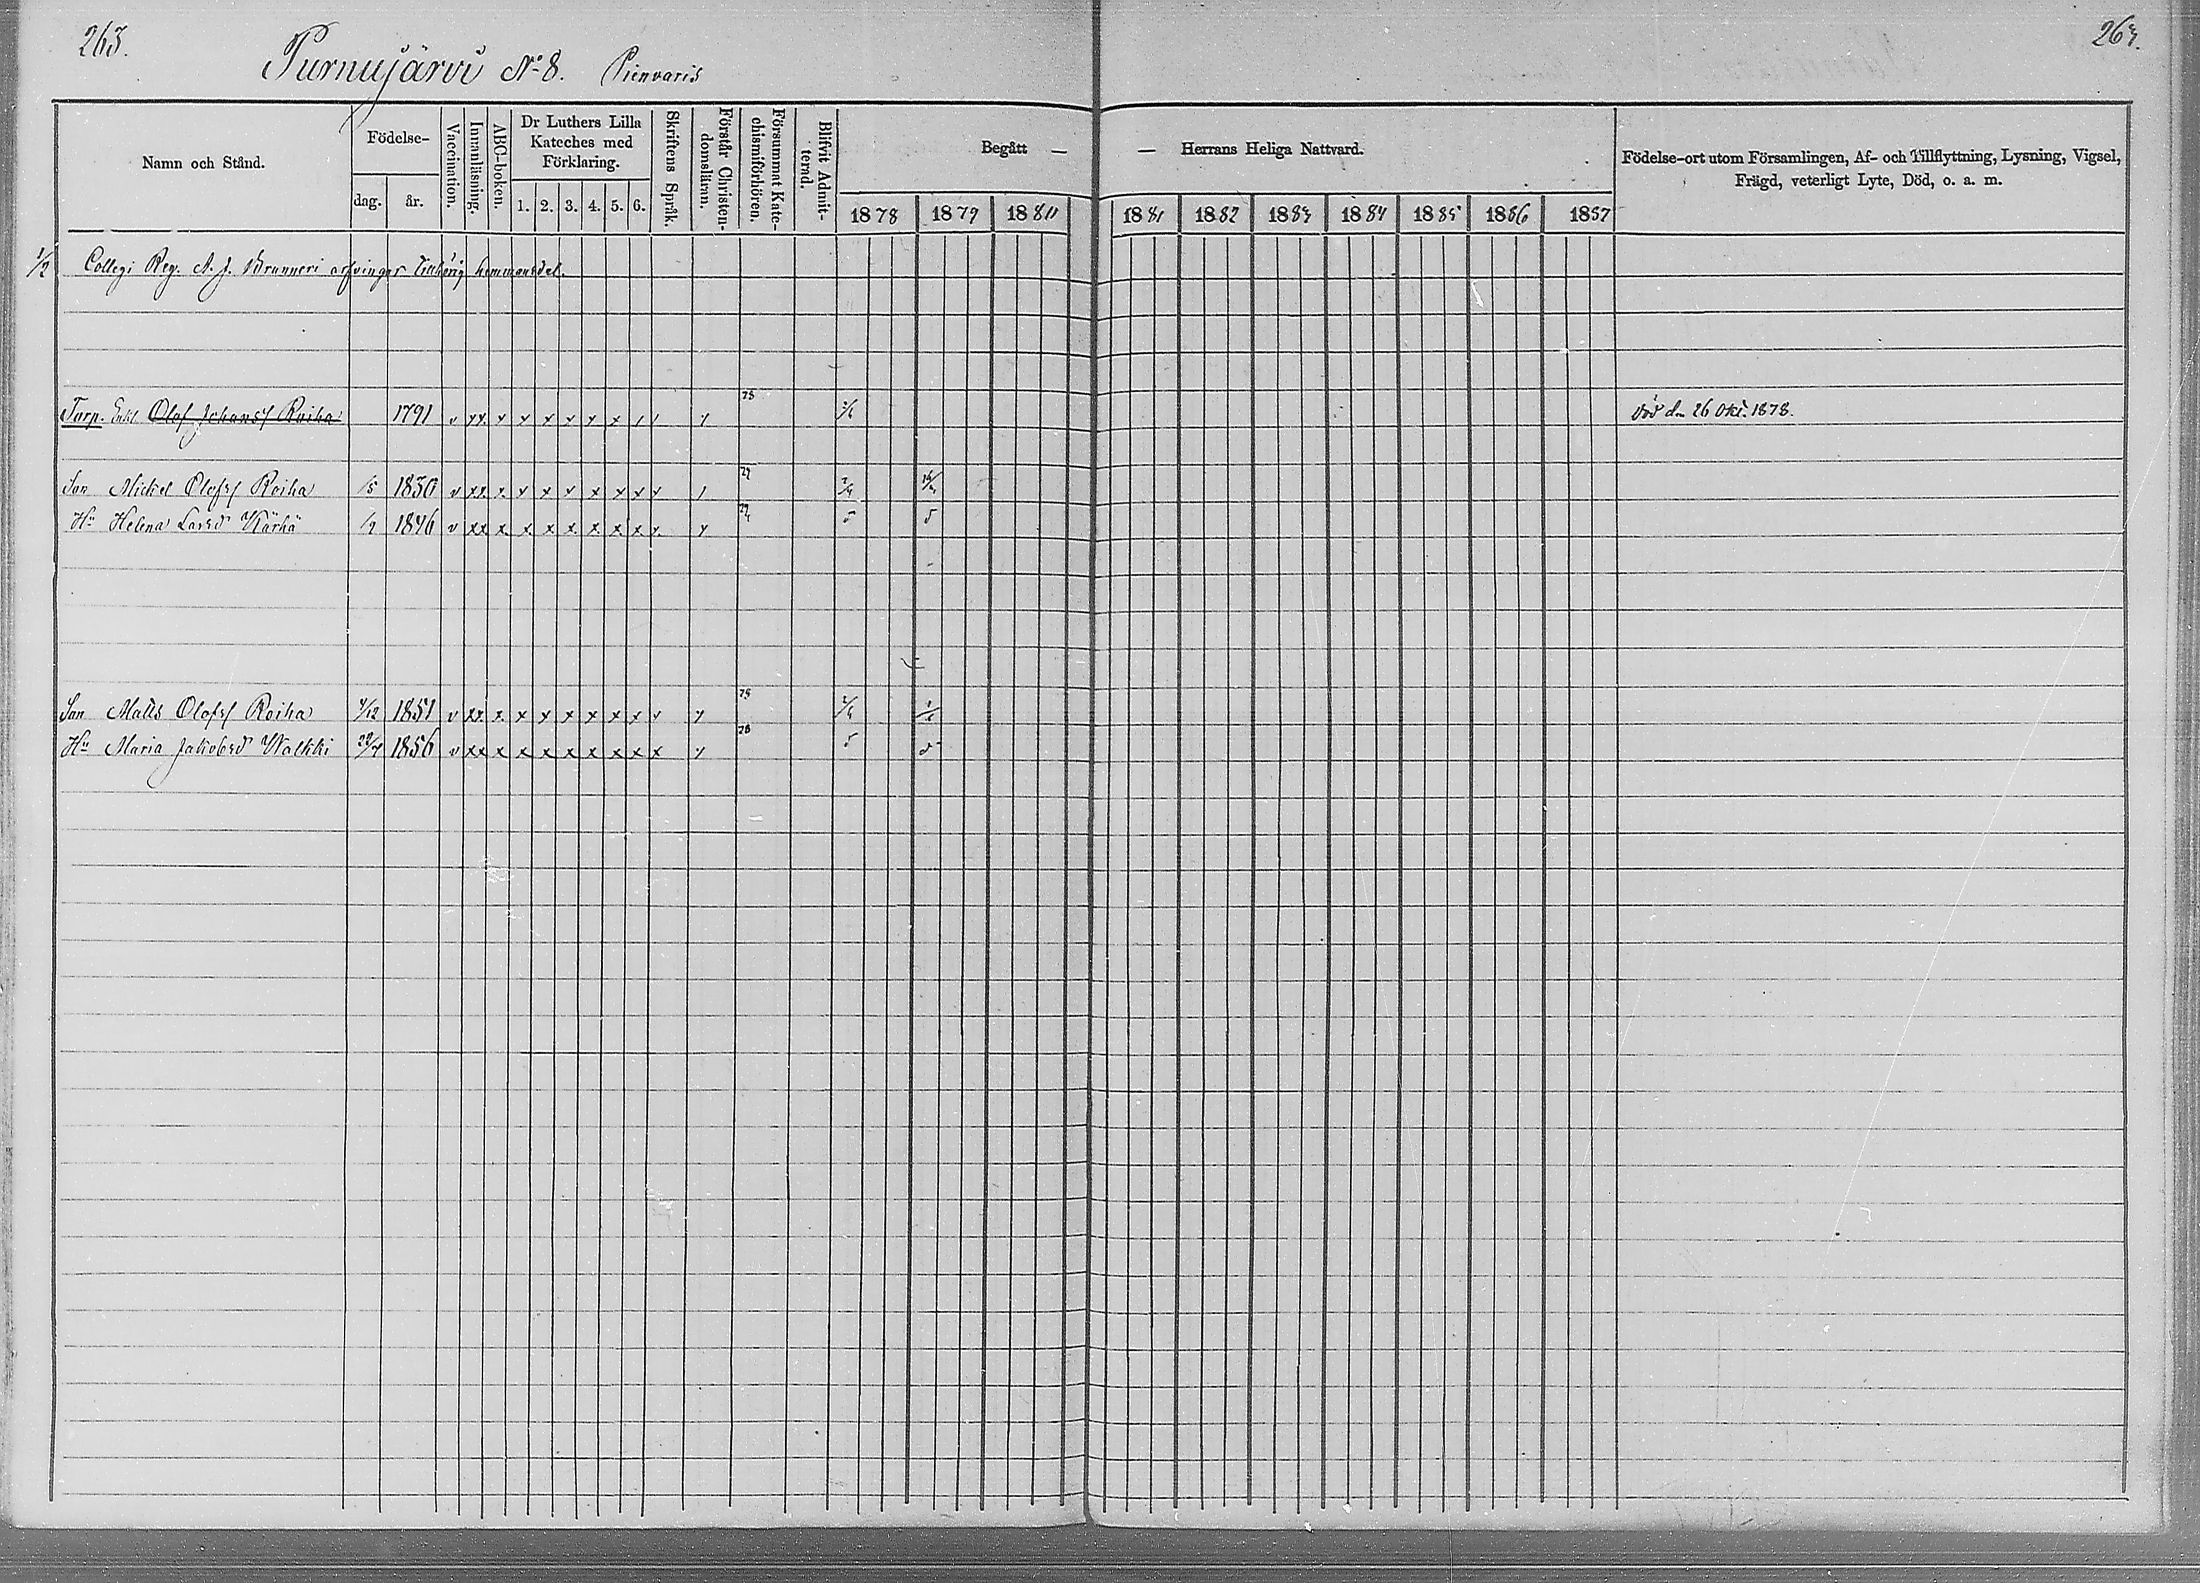 263.
263.
Purnujärvi No 8. Pienvaris
Namn och Stånd.
Födelse-
dag.
år.
Vaccination.
Innanläsning.
ABC-boken.
Dr Luthers Lilla
Kateches med
Förklaring.
1. 2. 3. 4. 5. 6.
Skriftens Språk.
Förstår Christen-
domslärans.
Försummat Kate-
chismiförhören.
Blifvit Admit-
terad.
Begått —
— Herrans Heliga Nattvard.
1878 1879 1880 1881 1882 1883 1884 1885 1886 1887
Födelse-ort utom Församlingen, Af- och Tillflyttning, Lysning, Vigsel,
Frägd, veterligt Lyte, Död, o. a. m.
1/2 Collegi Reg. A. J. Brunneri arfvingar tillhörig hemmansdel.
Torp. Enkl. Olof Johansf Roiha 1791 v xx x x x x x x 75 död den 26 Okt. 1878.
Son Mickel Olofsf Roiha 1/5 v xx x x x x x x x
Hu Helena Larsd Kärhä 1/2 1846 v xx x x x x x x x
Son Matts Olofsf Roiha 1851 v xx x x x x x x x 75
Hu Maria Jakobsd Walkki 1856 v xx x x x x x x x x 78